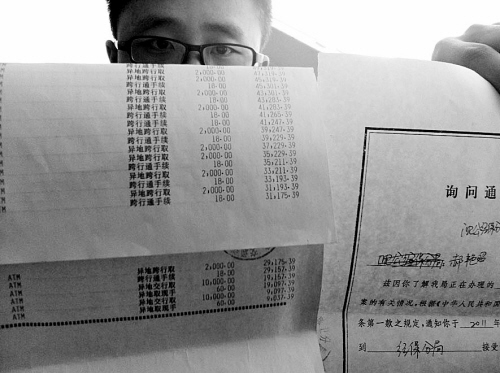 异地跨行取 2,000.00 45,319.39
跨行通手续 18.00 45,301.39
异地跨行取 2,000.00 43,301.39
跨行通手续 18.00 43,283.39
异地跨行取 2,000.00 41,283.39
跨行通手续 18.00 41,265.39
跨行通手续 18.00 41,247.39
异地跨行取 2,000.00 39,247.39
跨行通手续 18.00 39,229.39
异地跨行取 2,000.00 37,229.39
异地跨行取 2,000.00 35,229.39
跨行通手续 18.00 35,211.39
异地跨行取 2,000.00 33,211.39
跨行通手续 18.00 33,193.39
异地跨行取 2,000.00 31,193.39
跨行通手续 18.00 31,175.39
异地跨行取 2,000.00 29,175.39
ATM 跨行通手续 18.00 29,157.39
ATM 异地交行取 10,000.00 19,157.39
ATM 异地取现手 60.00 19,097.39
ATM 异地交行取 10,000.00 9,097.39
ATM 异地取现手 60.00 9,037.39
询问通
兹因你了解我局正在办理的
案的有关情况,根据《中华人民共和国
条第一款之规定,通知你于 2011 年
到 经保分局 接受